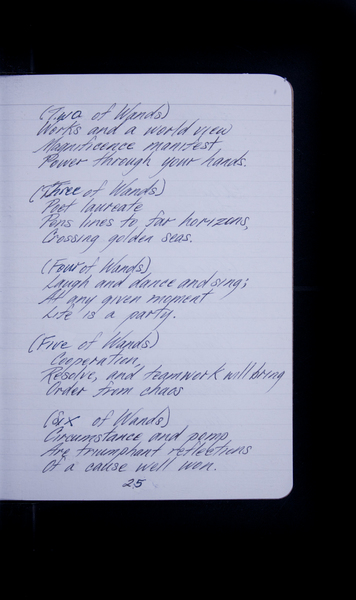 (Two of Wands)
Works and a world view
Magnificence manifest
Power through your hands.
(Three of Wands)
Poet laureate
Pens lines to far horizons,
Crossing golden seas.
(Four of Wands)
Laugh and dance and sing;
At any given moment
Life is a party.
(Five of Wands)
Cooperation,
Resolve, and teamwork will bring
Order from chaos
(Six of Wands)
Circumstance and pomp
Are triumphant reflections
Of a cause well won.
25